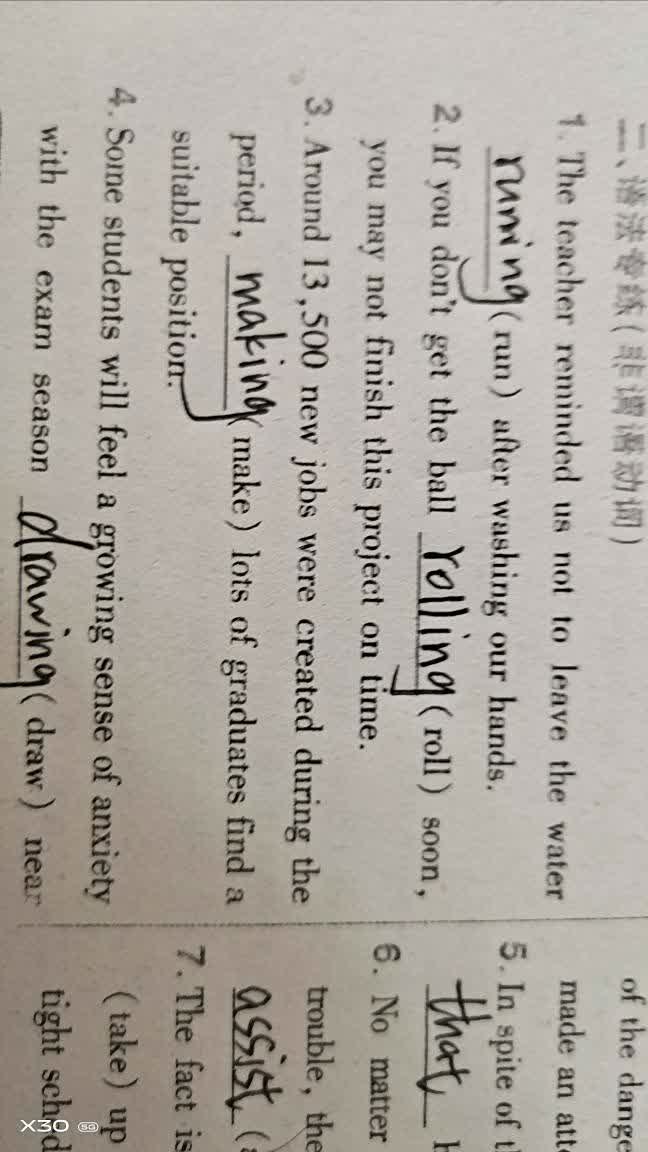 二、语法专练(非谓语动词)
1. The teacher reminded us not to leave the water
running (run) after washing our hands.
2. If you don't get the ball rolling (roll) soon,
you may not finish this project on time.
3. Around 13,500 new jobs were created during the
period, making (make) lots of graduates find a
suitable position.
4. Some students will feel a growing sense of anxiety
with the exam season drawing (draw) near
of the dange
made an atte
5. In spite of
that
6. No matter
trouble, the
assist (
7. The fact is
(take) up
tight sched
X30 5G